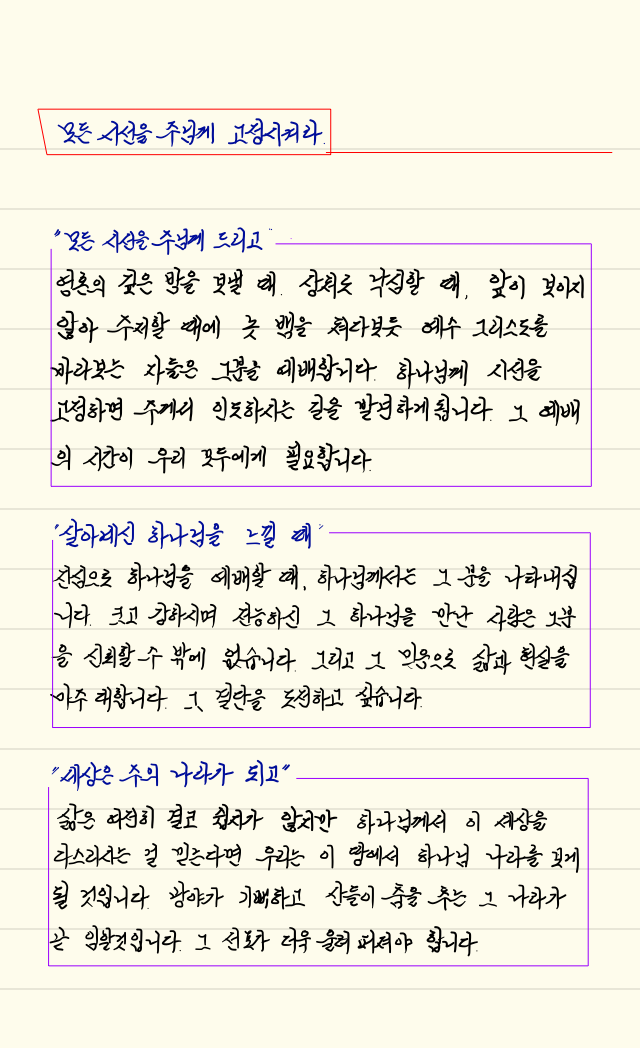 모든 시선을 주님께 고정시켜라
"모든 시선을 주님께 드리고"
영혼의 깊은 밤을 보낼 때. 상처로 낙심할 때, 앞이 보이지
않아 주저할 때에 놋 뱀을 쳐다보듯 예수 그리스도를
바라보는 자들은 그분을 예배합니다. 하나님께 시선을
고정하면 주께서 인도하시는 길을 발견하게 됩니다. 그 예배
의 시간이 우리 모두에게 필요합니다.
"살아계신 하나님을 느낄 때"
진심으로 하나님을 예배할 때, 하나님께서는 그 분을 나타내십
니다. 크고 강하시며 전능하신 그 하나님을 만난 사람은 그분
을 신뢰할 수 밖에 없습니다. 그리고 그 믿음으로 삶과 현실을
마주 대합니다. 그 결단을 도전하고 싶습니다.
"세상은 주의 나라가 되고"
삶은 여전히 결코 쉽지가 않지만 하나님께서 이 세상을
다스리시는 걸 믿는다면 우리는 이 땅에서 하나님 나라를 보게
될 것입니다. 광야가 기뻐하고 산들이 춤을 추는 그 나라가
곧 임할것입니다. 그 선포가 더욱 울려 퍼져야 합니다.